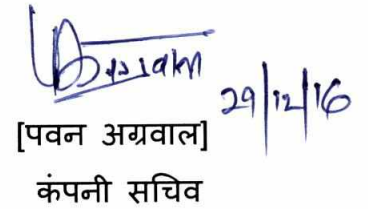 29/12/16
[पवन अग्रवाल]
कंपनी सचिव